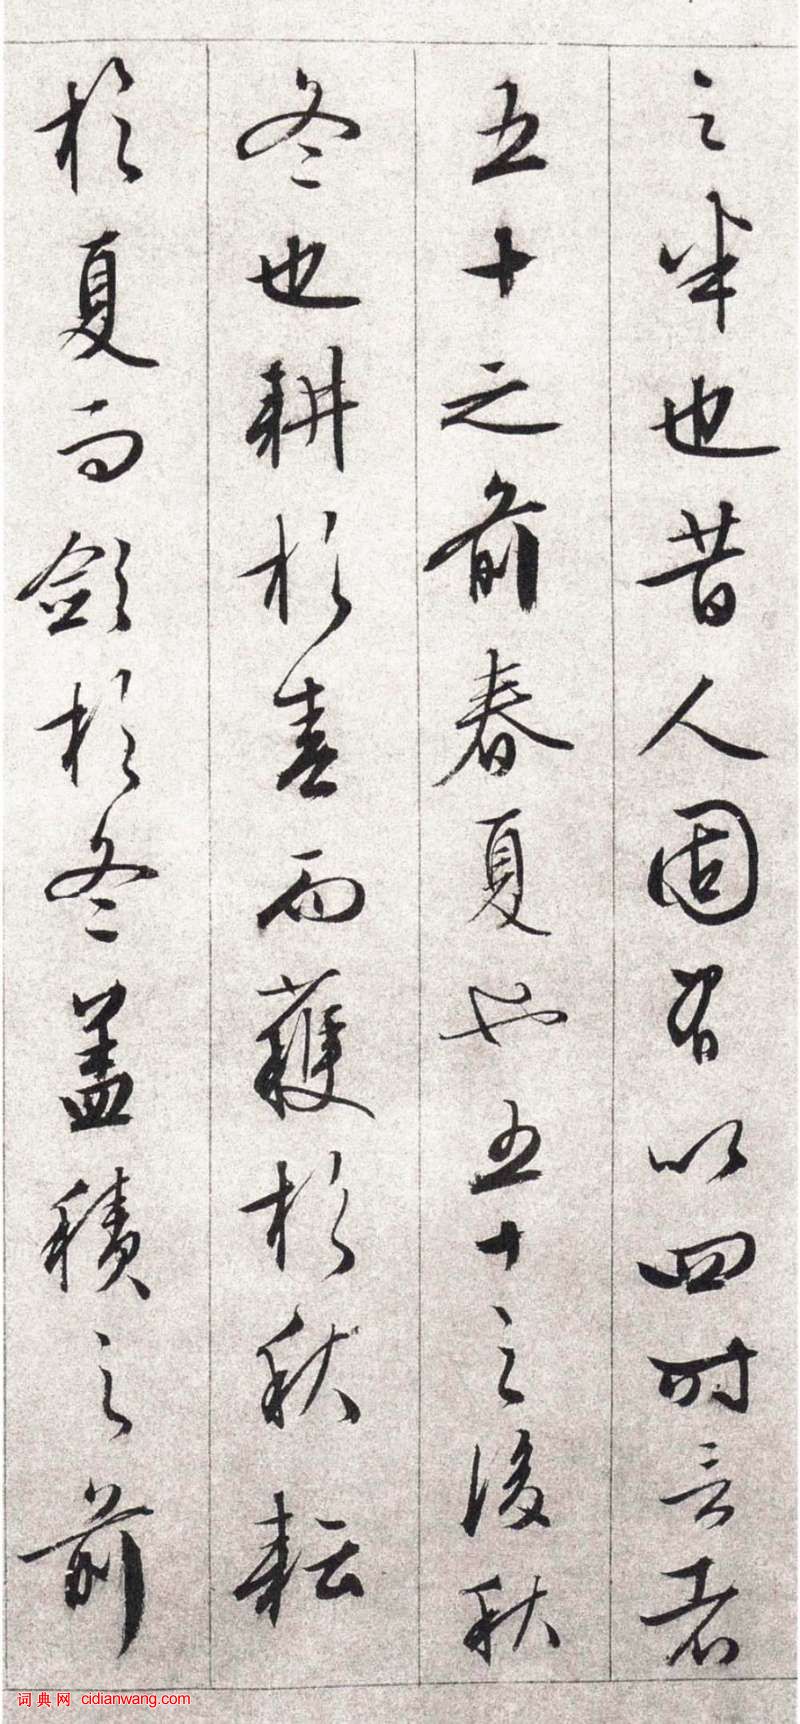 之半也昔人固有以四时言者
五十之前春夏也五十之後秋
冬也耕於春而穫於秋耘
於夏而斂於冬蓋積之前
词典网 cidianwang.com